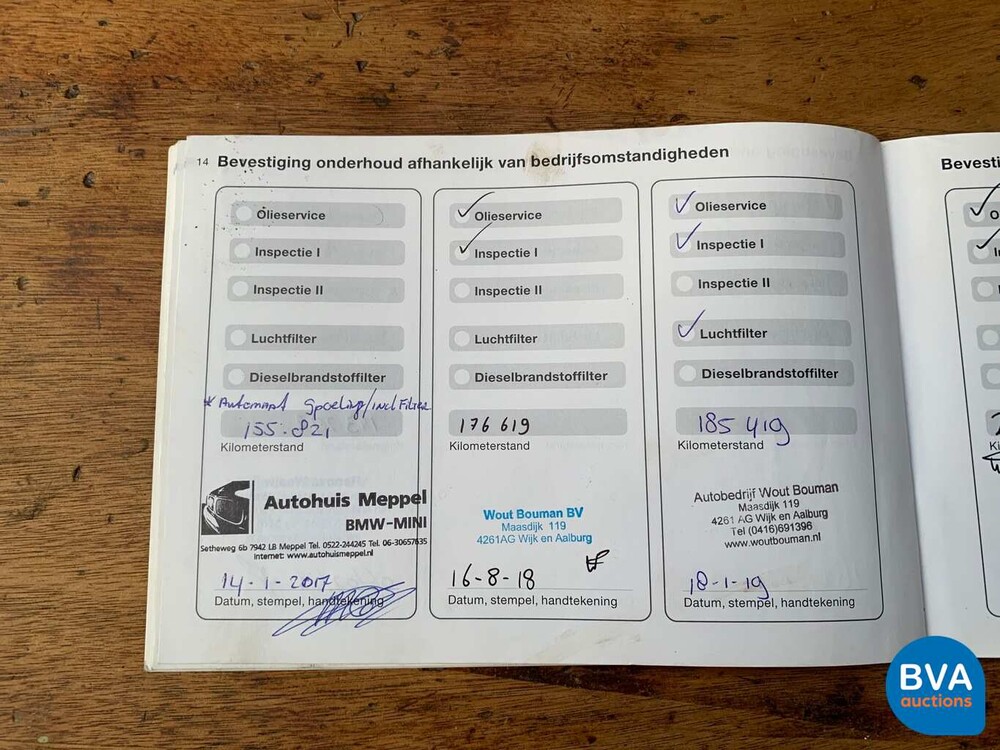 14 Bevestiging onderhoud afhankelijk van bedrijfsomstandigheden
Olieservice
Inspectie I
Inspectie II
Luchtfilter
Dieselbrandstoffilter
* Automaat Spoeling/incl Filter
155.821
Kilometerstand
Autohuis Meppel
BMW-MINI
Setheweg 6b 7942 LB Meppel Tel. 0522-244245 Tel. 06-30657635
Internet: www.autohuismeppel.nl
14-1-2017
Datum, stempel, handtekening
Olieservice
Inspectie I
Inspectie II
Luchtfilter
Dieselbrandstoffilter
176 619
Kilometerstand
Wout Bouman BV
Maasdijk 119
4261AG Wijk en Aalburg
16-8-18
Datum, stempel, handtekening
Olieservice
Inspectie I
Inspectie II
Luchtfilter
Dieselbrandstoffilter
185 419
Kilometerstand
Autobedrijf Wout Bouman
Maasdijk 119
4261 AG Wijk en Aalburg
Tel (0416)691396
www.woutbouman.nl
18-1-19
Datum, stempel, handtekening
Bevesti
BVA
auctions